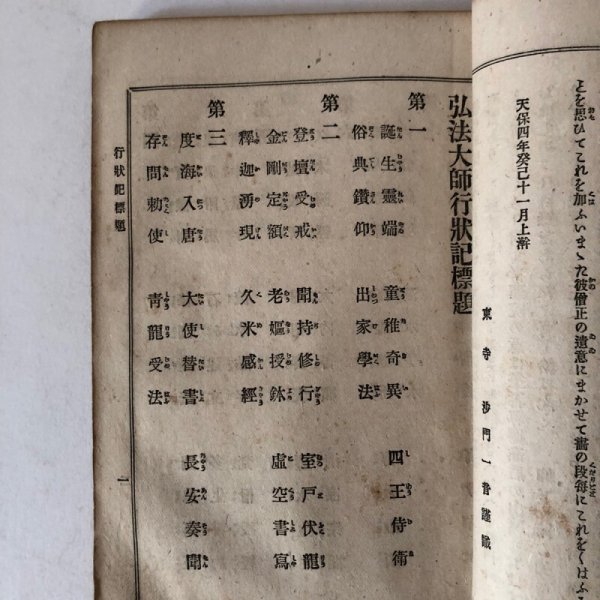 とを思ひてこれを加ふいまゝた彼僧正の遺意にまかせて畵の段毎にこれをくはふ
天保四年癸巳十一月上澣
東寺 沙門
弘法大師行狀記標題
第一
誕生靈端 童稚奇異 四王侍衛
俗典鑽仰 出家學法
第二
登壇受戒 聞持修行 室戸伏龍
金剛定額 老嫗授鉢 虛空書寫
釋迦湧現 久米感經
第三
度海入唐 大使替書 長安奏聞
存問勅使 青龍受法
行狀記標題
一